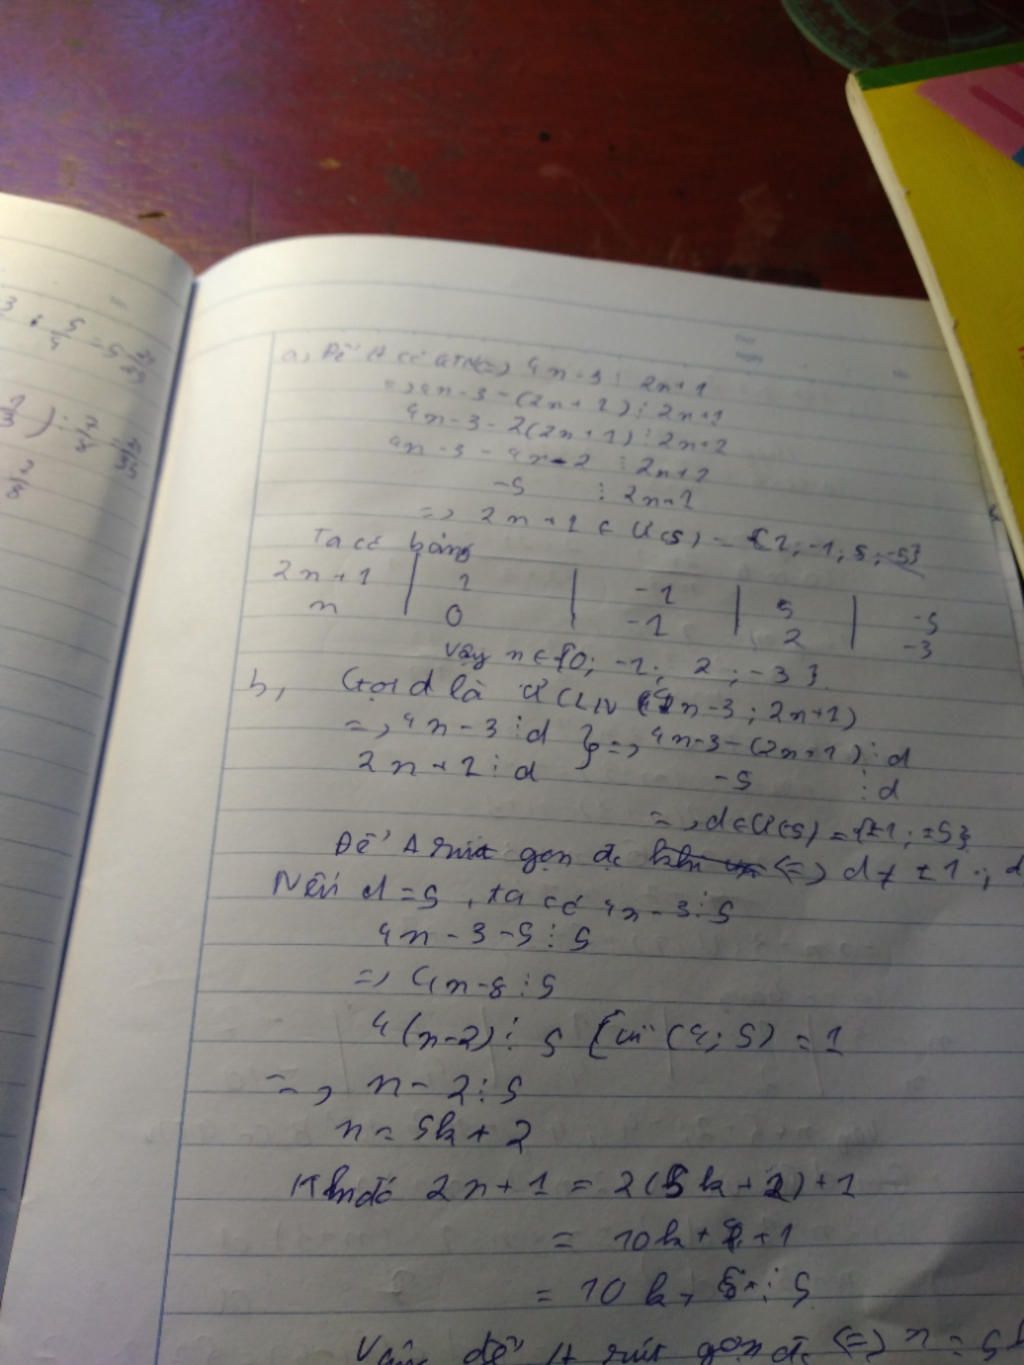 3/ : 5/4 = 5
a, Để A có GTN <=> 4n-3 ⋮ 2n+1
=> 4n-3-(2n+1) ⋮ 2n+1
4n-3-2(2n+1) ⋮ 2n+1
4n-3-4n-2 ⋮ 2n+1
-5 ⋮ 2n+1
=> 2n+1 ∈ Ư(5) = {1; -1; 5; -5}
Ta có bảng
2n+1 | 1 | -1 | 5 | -5
n | 0 | -1 | 2 | -3
Vậy n ∈ {0; -1; 2; -3}.
b, Gọi d là ƯCLN (4n-3; 2n+1)
=> 4n-3 ⋮ d } => 4n-3-(2n+1) ⋮ d
2n+1 ⋮ d -5 ⋮ d
=> d ∈ Ư(5) = {±1; ±5}
Để A rút gọn đc <=> d ≠ ±1.;
Nếu d = 5, ta có 4n-3 ⋮ 5
4n-3-5 ⋮ 5
=> 4n-8 ⋮ 5
4(n-2) ⋮ 5 [vì (4; 5) = 1
=> n-2 ⋮ 5
n = 5k+2
Khi đó 2n+1 = 2(5k+2)+1
= 10k+4+1
= 10k+5 ⋮ 5
Vậy để A rút gọn đc <=> n = 5